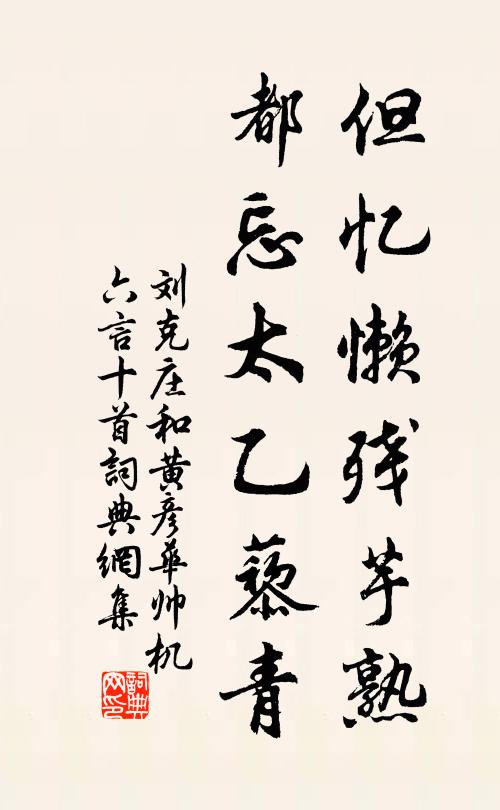 但忆懒残芋熟
都忘太乙藜青
刘克庄和黄彦華帅机
六言十首詞典網集
詞典網印